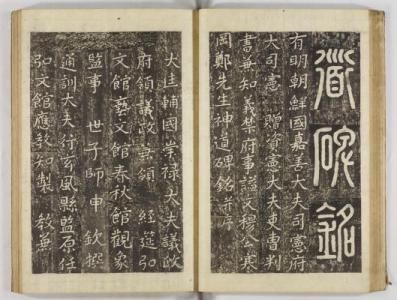 道碑銘
有明朝鮮國嘉善大夫司憲府
大司憲 贈資憲大夫吏曹判
書兼知義禁府事謚文穆公寒
岡鄭先生神道碑銘并序
大匡輔國崇祿大夫議政
府領議政兼領 經筵弘
文館藝文館春秋館觀象
監事 世子師申 欽撰
通訓大夫行玄風縣監原任
弘文館應教知製 教兼